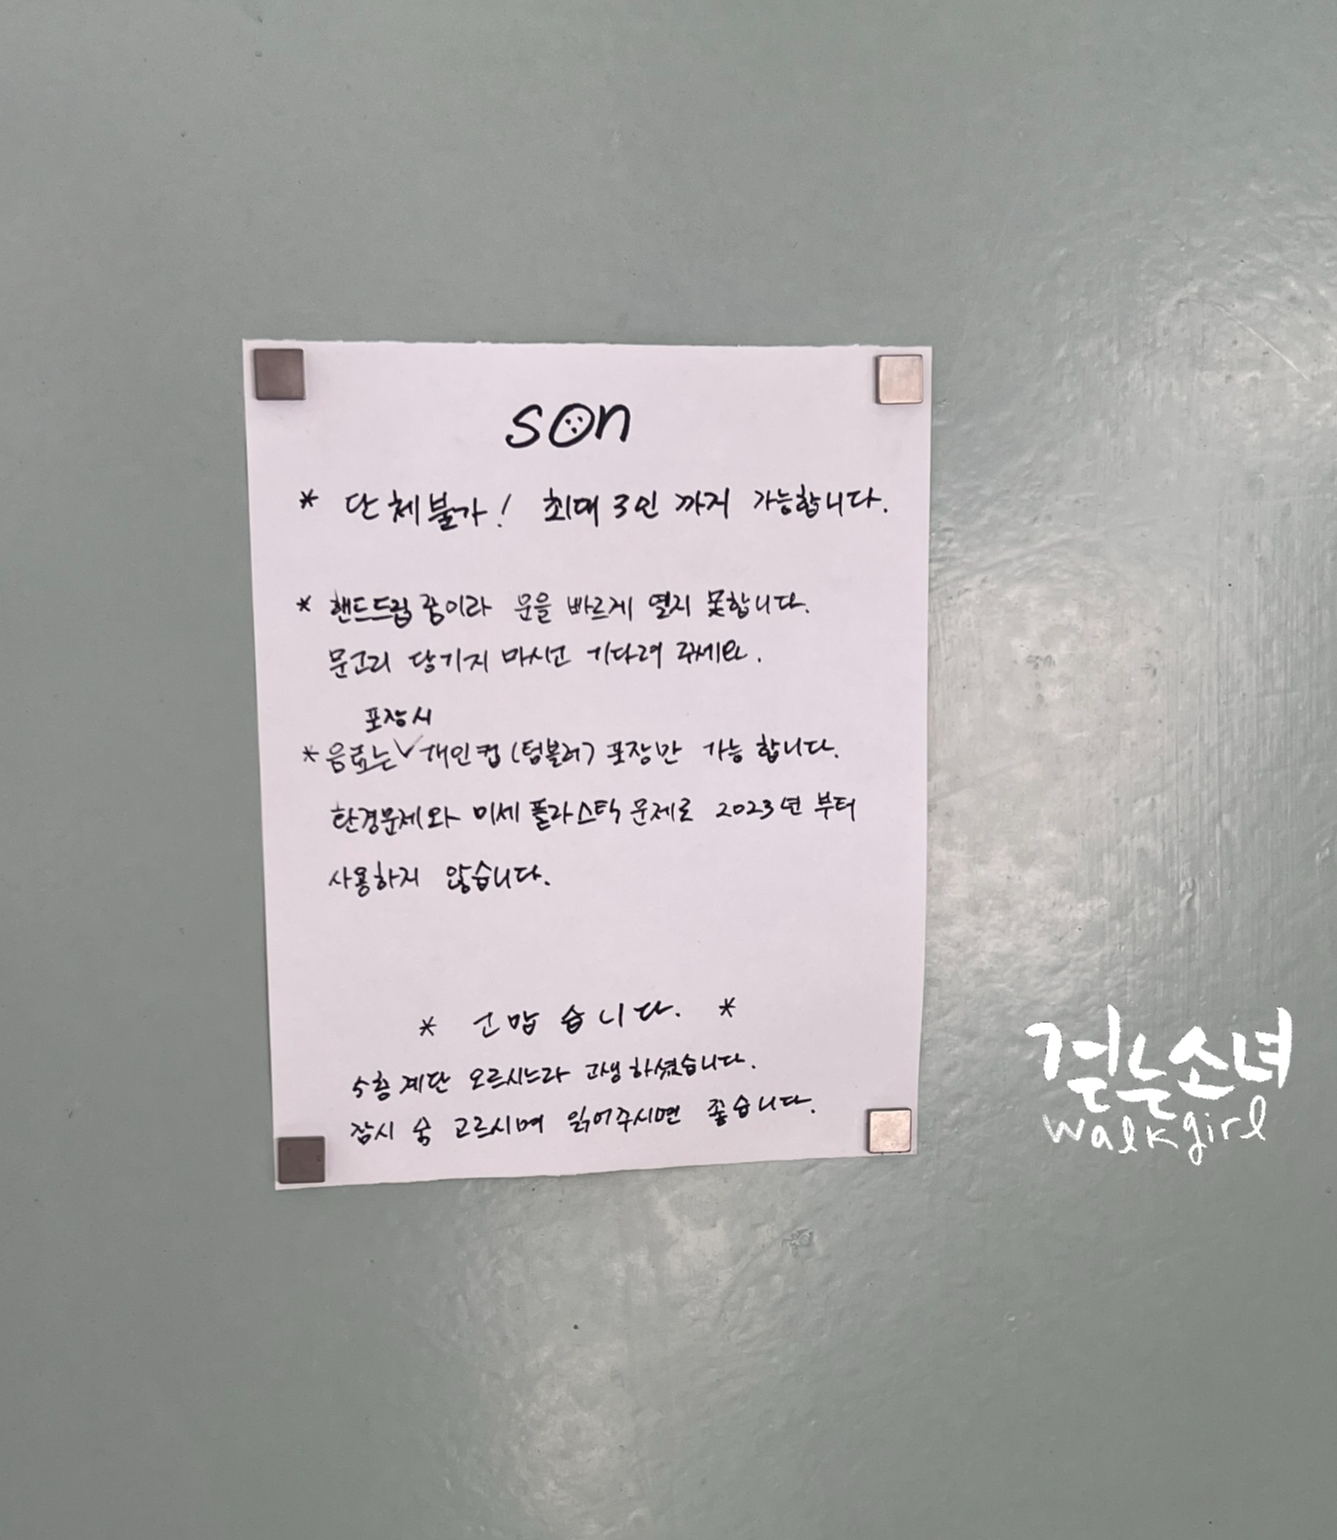 son
* 단체불가! 최대 3인 까지 가능합니다.
* 핸드드립 중이라 문을 빠르게 열지 못합니다.
문고리 당기지 마시고 기다려 주세요.
포장시
* 음료는 ✓ 개인컵 (텀블러) 포장만 가능 합니다.
환경문제와 미세 플라스틱 문제로 2023년 부터
사용하지 않습니다.
* 고맙습니다. *
5층 계단 오르시느라 고생하셨습니다.
잠시 숨 고르시며 읽어주시면 좋습니다.
걷는소녀
walkgirl